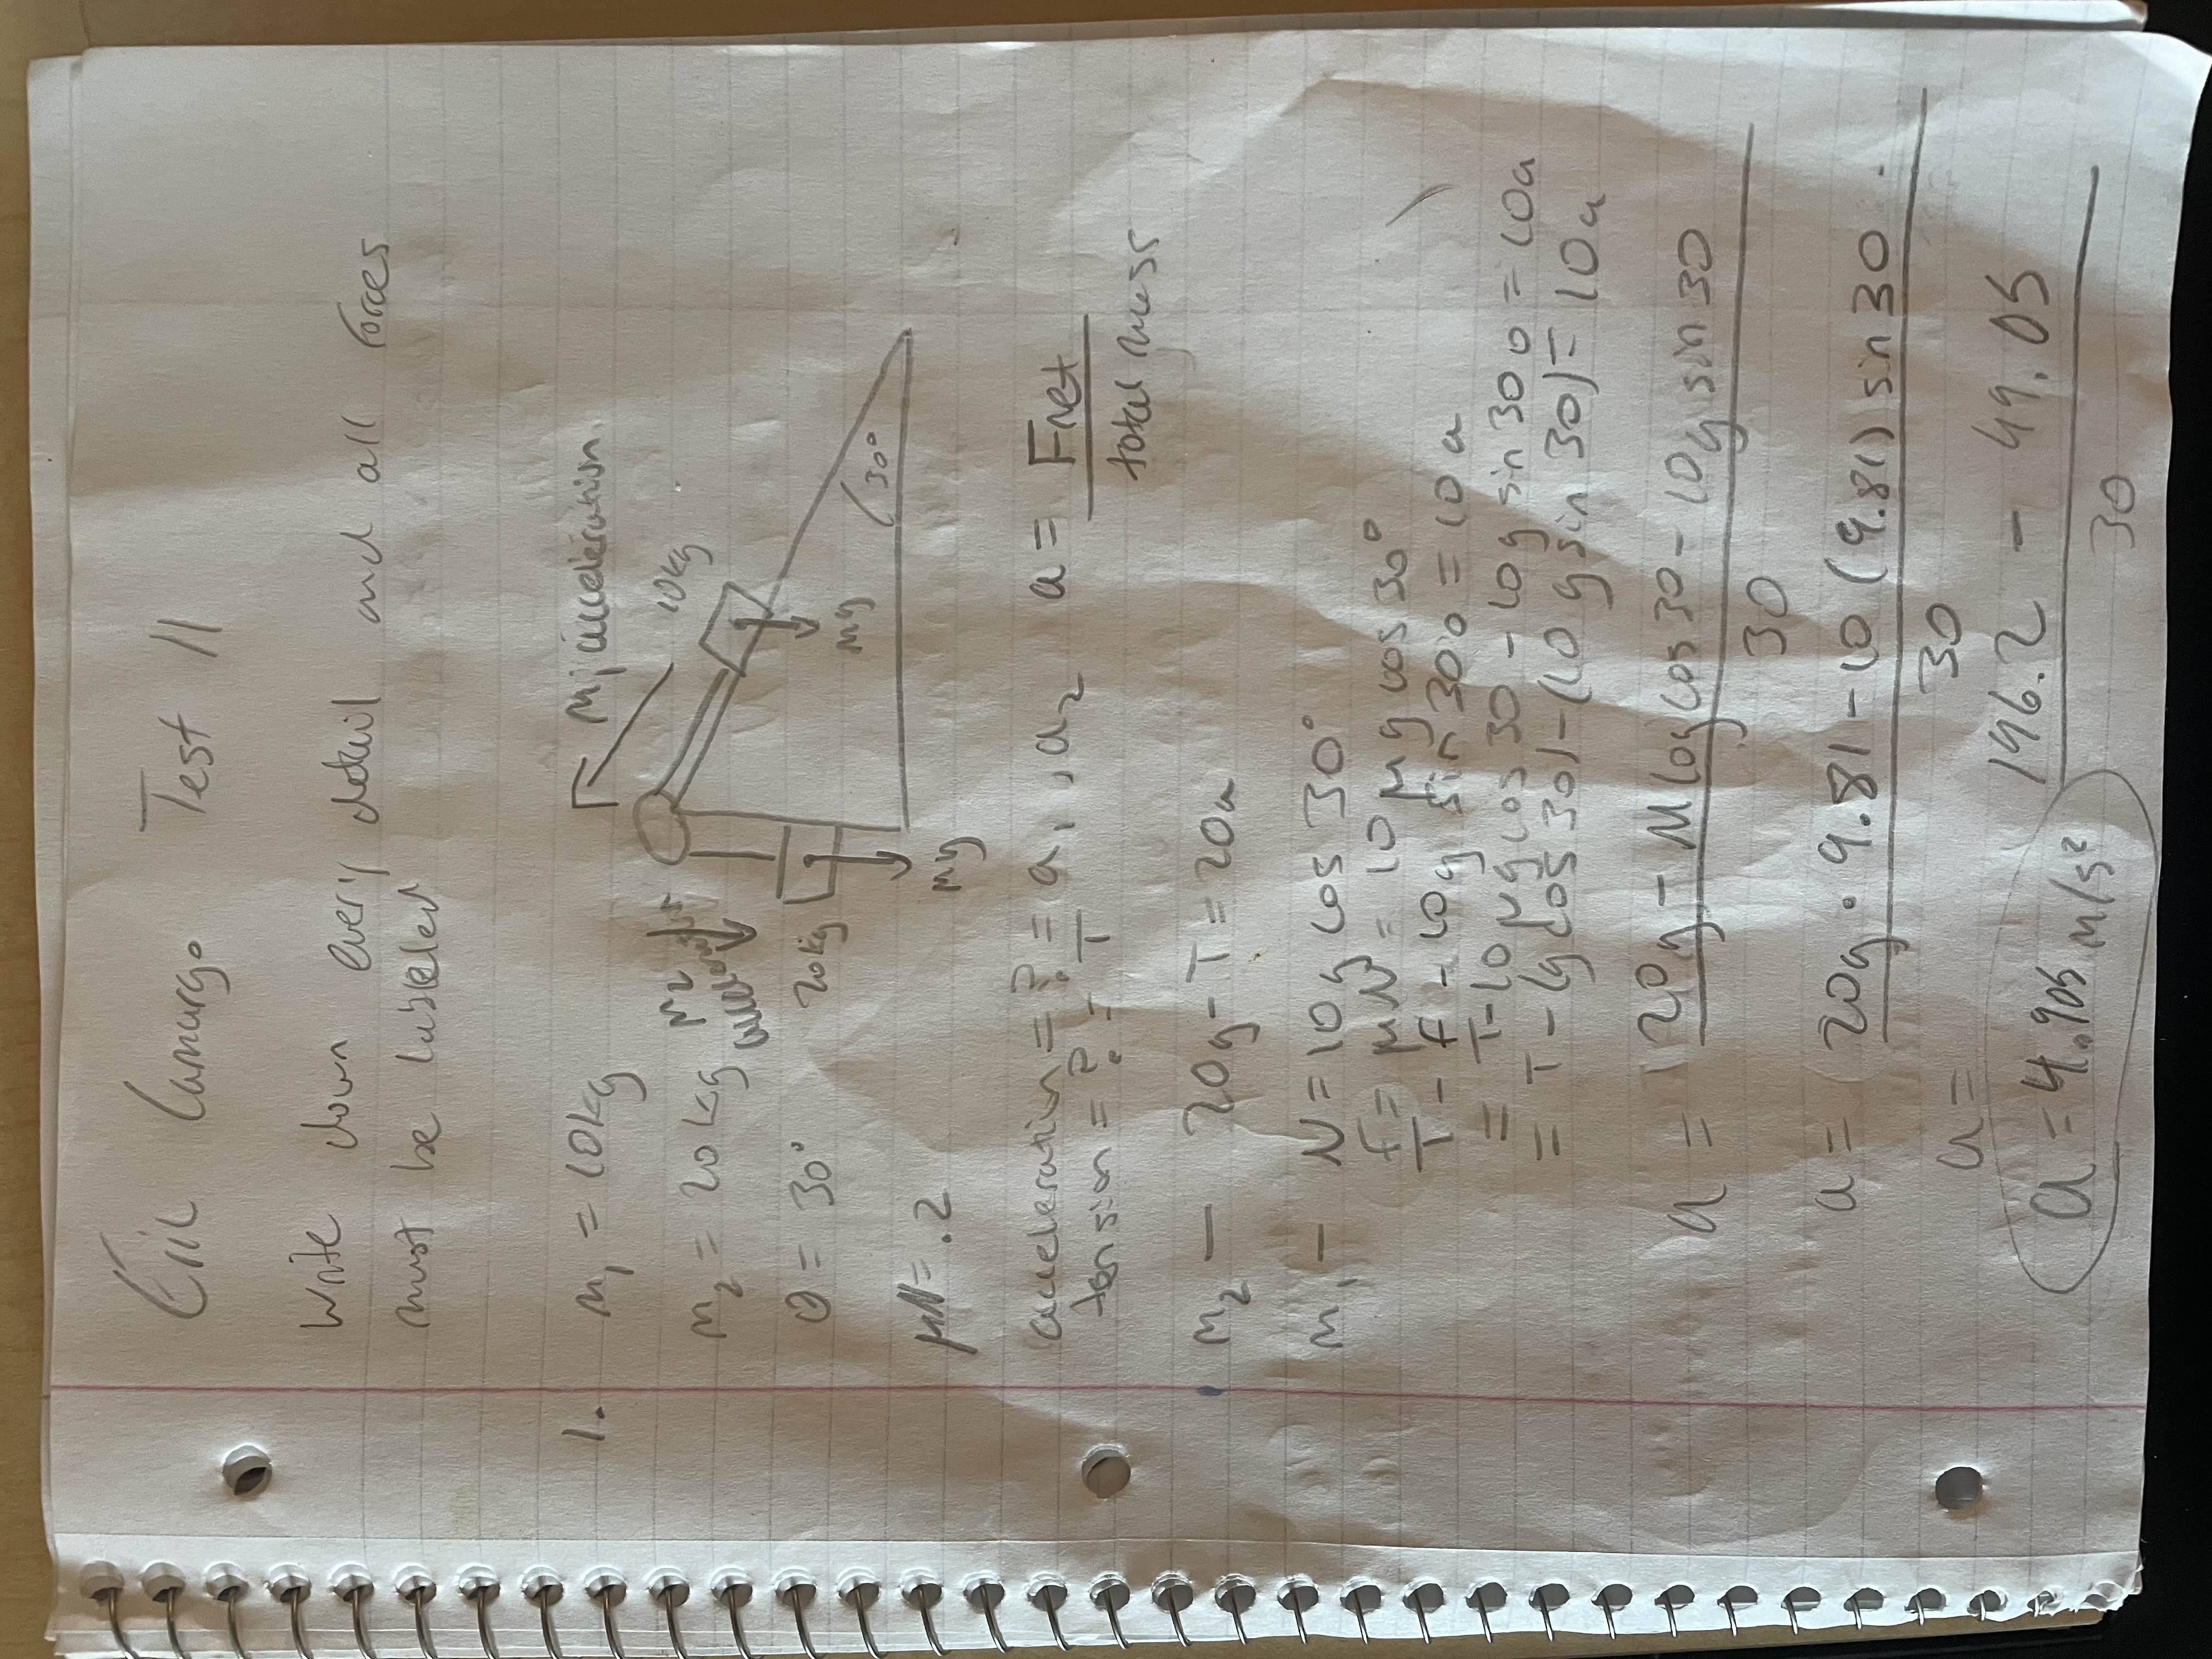 Eric Camargo Test 11
Write down every detail and all forces
must be labeled
1. m₁ = 10kg
m₂ = 20kg
θ = 30°
μN = .2
M₁ acceleration
m₂ acceleration
10kg
20kg
mg
mg
30°
acceleration = ? = a₁, a₂ a = Fnet / total mass
tension = ? = T
m₂ — 20g - T = 20a
m₁ — N = 10g cos 30°
f = μN = 10 μg cos 30°
T - f - 10g sin 30° = 10a
= T - 10 μg cos 30 - 10g sin 30° = 10a
= T - (g cos 30) - (10 g sin 30) = 10a
a = 20g - M10g cos 30 - 10g sin 30
30
a = 20g · 9.81 - 10 (9.81) sin 30
30
a = 196.2 - 49.05
30
a = 4.905 m/s²